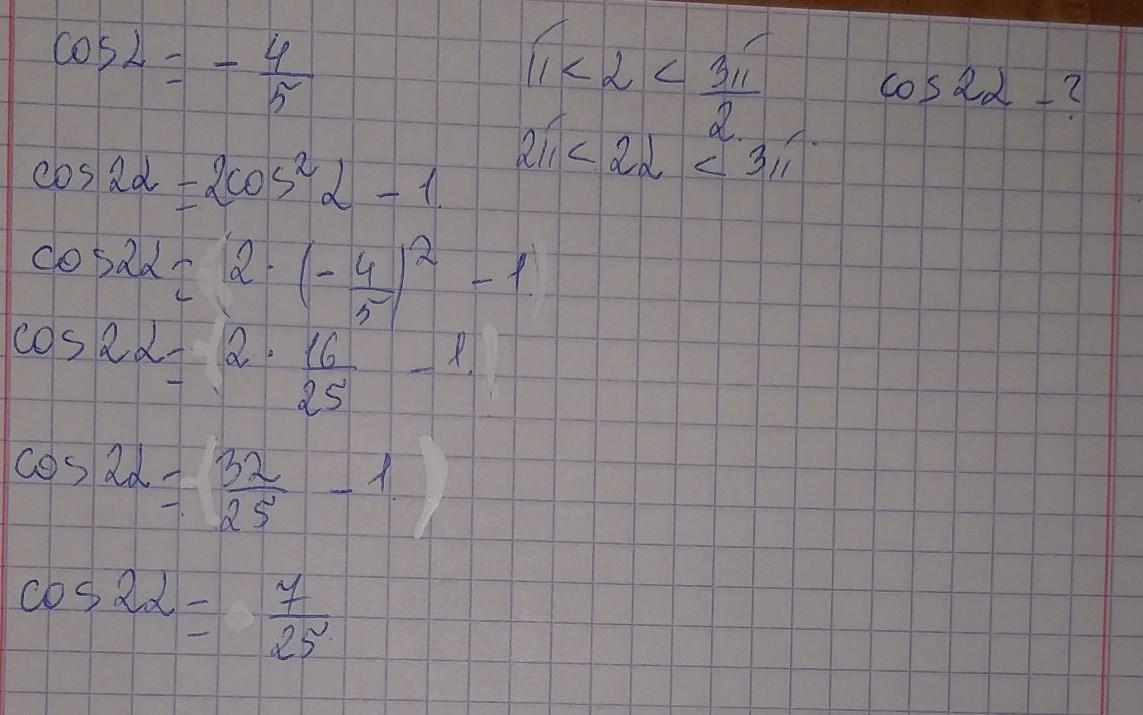 cos α = - 4/5    π < α < 3π/2    cos 2α - ?
2π < 2α < 3π
cos 2α = 2cos² α - 1.
cos 2α = 2 · (- 4/5)² - 1.
cos 2α = 2 · 16/25 - 1.
cos 2α = 32/25 - 1.
cos 2α = 7/25